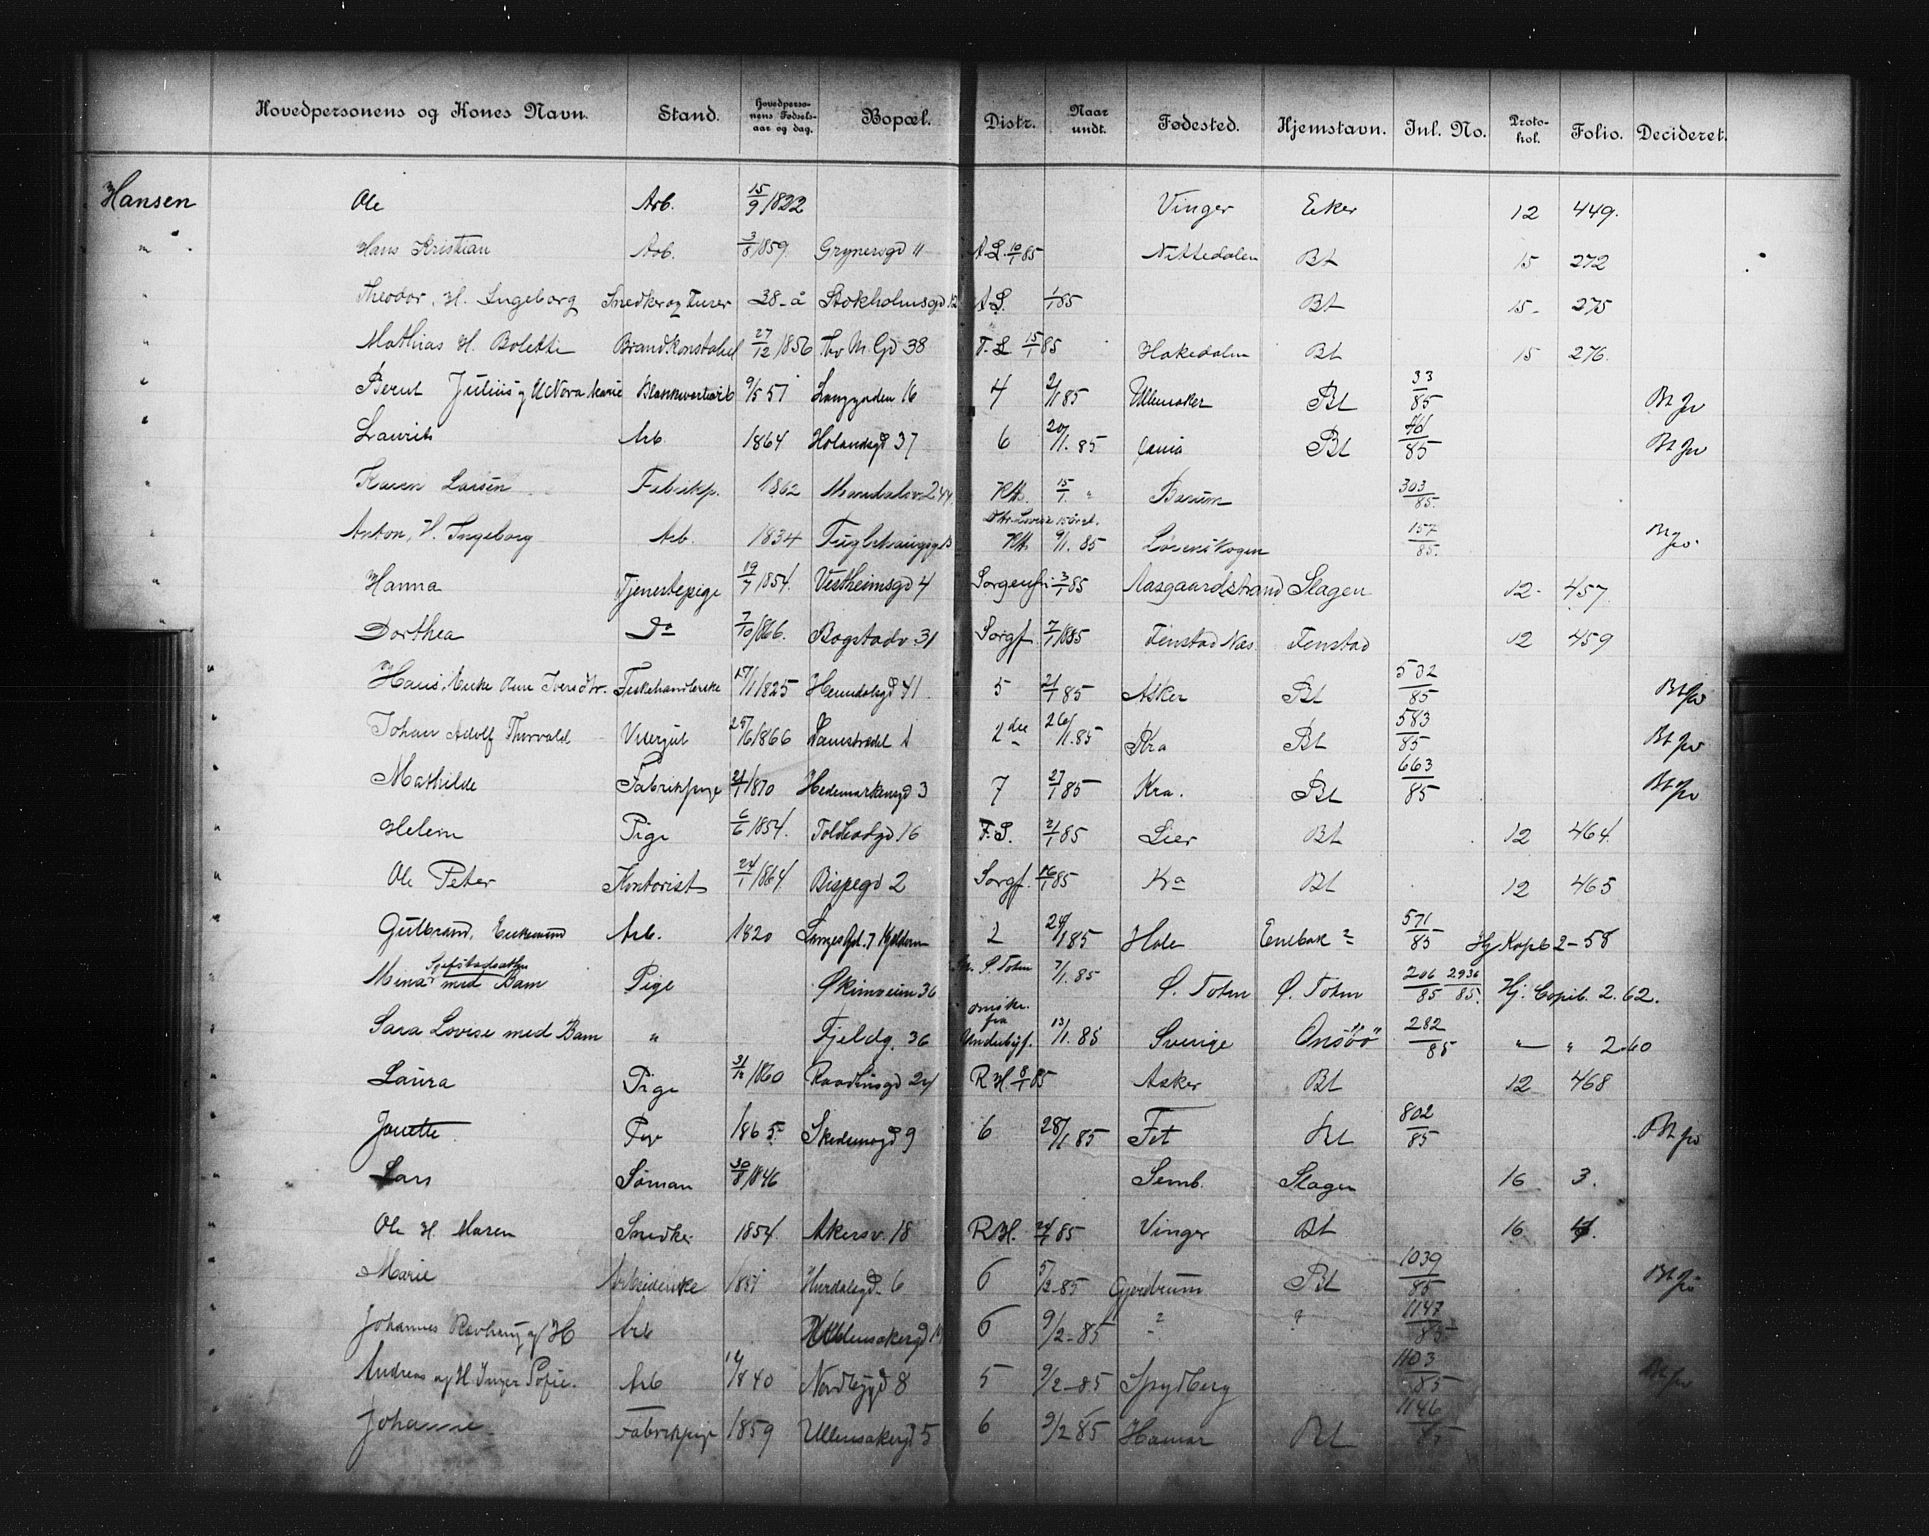 Hovedpersonens og Kones Navn. Stand. Hovedpersonens Fødselsaar og dag. Bopæl. Distr. Naar undt. Fødested. Hjemstavn. Inl. No. Protokol. Folio. Decideret.
Hansen Ole Arb. 15/9 1822 Vinger Eker 12 449.
" Hans Kristian Arb. 3/8 1859. Grynersgd 11 A.L. 10/1 85 Nittedalen Bt 15 272
" Theodor, H. Ingeborg Snedker og Turer 38 å Stokholmsgd 12 A.L. 1/1 85 Bt 15- 275
" Mathias H. Bolette Brandkonstabel 27/12 1856 Th. M. Gd 38 F.L 15/1 85 Hakedalen Bt 15 276.
" Bernt Julius og H Nora Marie 9/5 57 Langgaden 16 4 2/1 85 Ullensaker Bt 33/85 Bt jw
" Laurits Arb 1864 Holandsgd 37 6 20/1. 85 Bt /85 Bt jw
" Karen Larsen Fabrikp. 1862 Mandalsv. 15/1 " Bærum 303/85.
Anton, H. Ingeborg Arb. 1834 9/1. 85 Lørenskogen 157/85.
" Hanna Tjenestepige 19/7 1854. Vestheimsgd 4 Sorgenfri 3/1 85 Aasgaardstrand Slagen 12- 457
" Dorthea Do 7/10 1866. Bogstadv 31 Sorgf. 7/1 1885 Fenstad Næs Fenstad 12 459
" Hans, Enke Ane Iversdtr. Fiskehandlerske 17/1 1825 Heimdalsgd 41 5 21/1 85 Asker Bt 532/85 Bt jw
" Johan Adolf Thorvald Visergut 25/6 1866 1 2den 26/1.85 Kra Bt 583/85 Bt jw
" Mathilde Fabrikpige 21/1 1870 Hedemarkensgd 3 7 27/1 85 Kra. Bt 663/85 Bt jw
" Helene Pige 6/6 1854. Toldbodgd 16 F.L. 2/1 85 Lier Bt 12 464.
" Ole Peter Kontorist 24/1 1864 Bispegd 2 Sorgf. 16/1 85 Kra Bt 12 465
" Gulbrand, Enkemand Arb. 1820 Langes Gd. 7 Kjelderen 2 29/1 85 Hole Enebak ? 571/85 Hj Kopb 2-58
" Mina med Barn Pige 36 Ø. Toten 7/1. 85 Ø. Toten Ø. Toten 206/85 2936/85. Hj. Copib. 2. 62.
" Sara Lovise med Barn " Fjeldg. 36 13/1. 85 Sverige Onsöö 282/85 " " 2.60
" Laura Pige 31/12 1860 24 R H 8/1 85 Asker Bt 12 468
" Janette Pige 1865 Skedsmogd 9 6 28/1 85 Fet Bt 802/85 Bt jw
" Lars Søman 30/8 1846 Semb. Slagen 16 3.
" Ole H. Maren Snedker 1854. Akersv. 18 R.H. 24/1 85 Vinger Bt 16 4.
" Marie Arbeiderske Hurdalsgd 6 6 5/2-85 Gjerdrum Bt 1039/85 Bt jw
" Johannes og H Arb Ullensakergd 6 9/2-85 ? ? 1147/85
" Andreas og H. Inger Sofie. Arb 40 Nordbygd 8 5 9/2-85 Spydberg 1103/85 Bt jw
" Johanne Fabrikpige 1859 Ullensakergd 5 6 9/2 85 Hamar Bt 1146/85